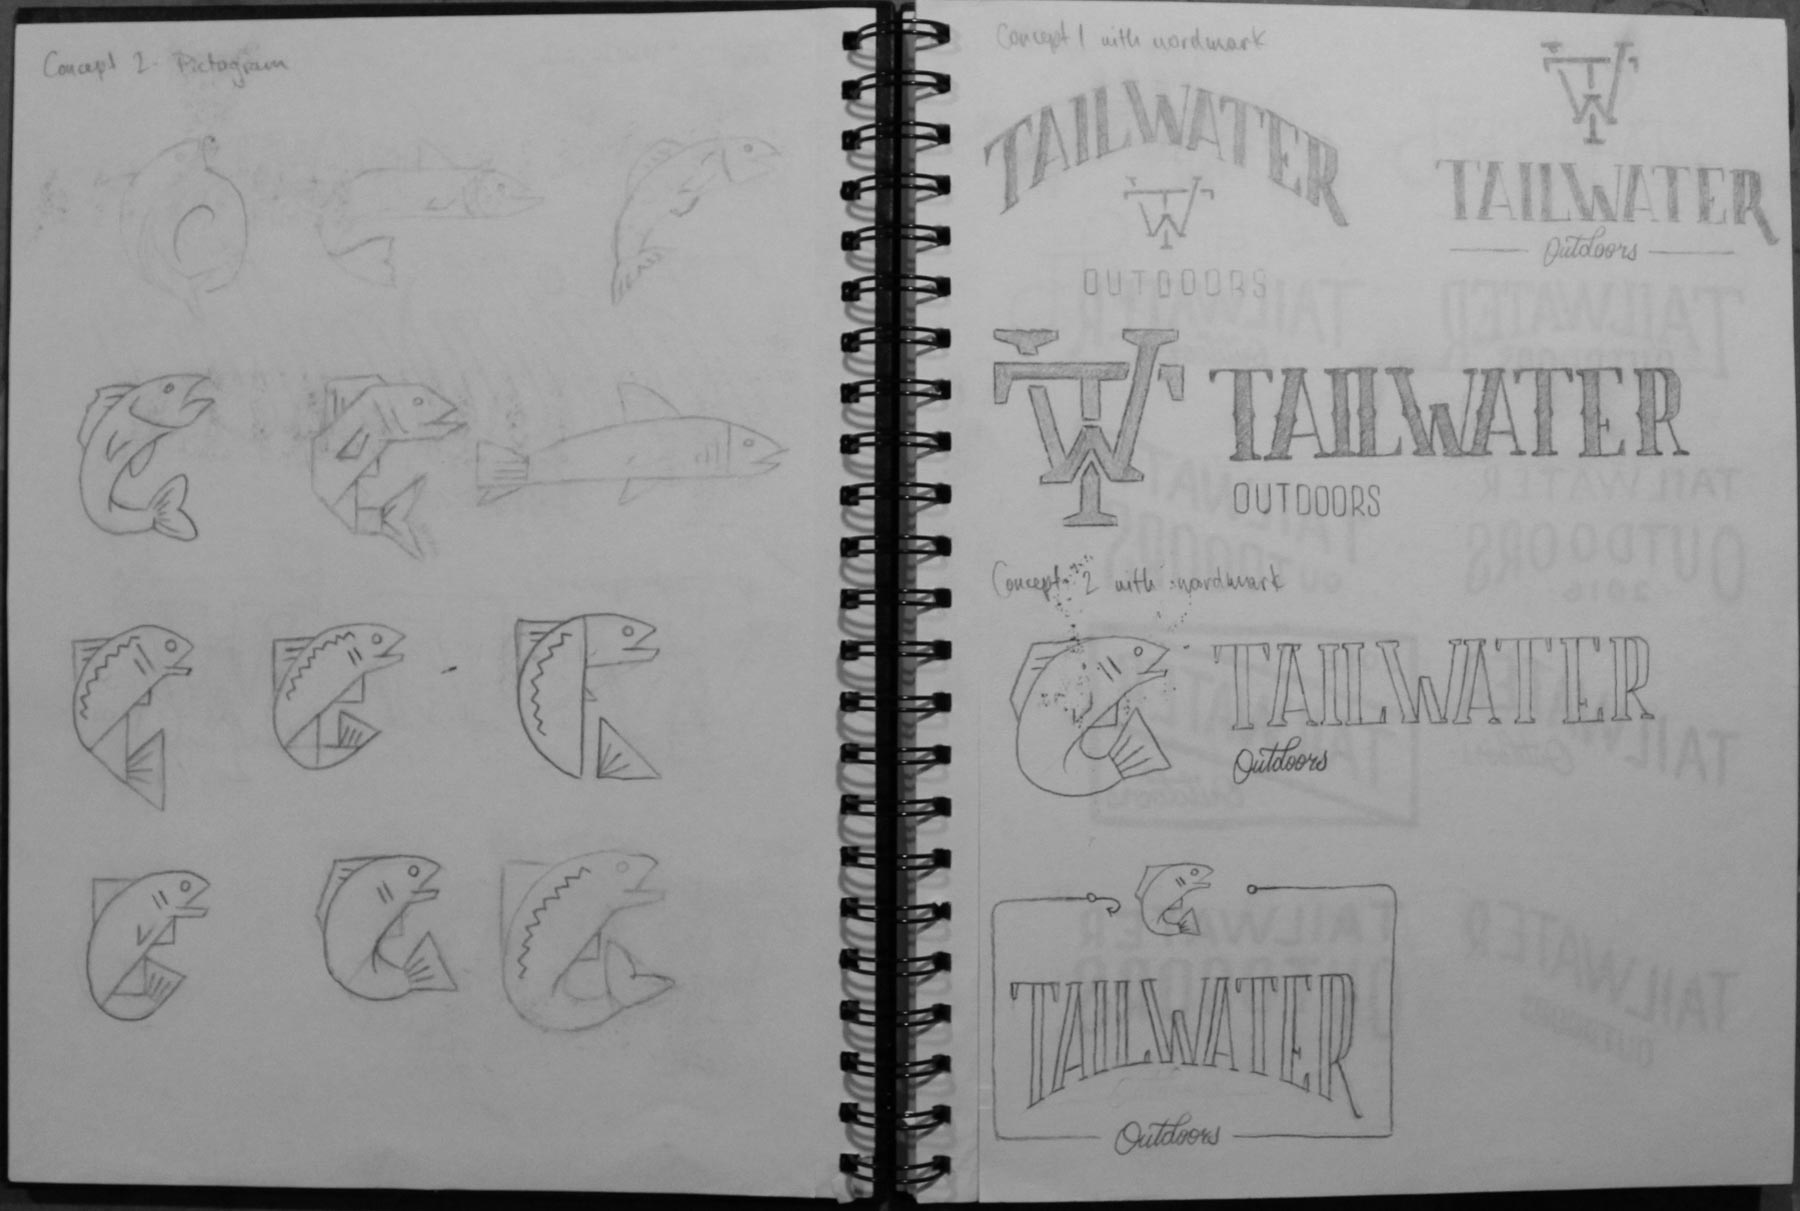 Concept 2 - Pictogram
Concept 1 with wordmark
TAILWATER
TW
OUTDOORS
TW
TAILWATER
Outdoors
TW
TAILWATER
OUTDOORS
Concept 2 with wordmark
TAILWATER
Outdoors
TAILWATER
Outdoors